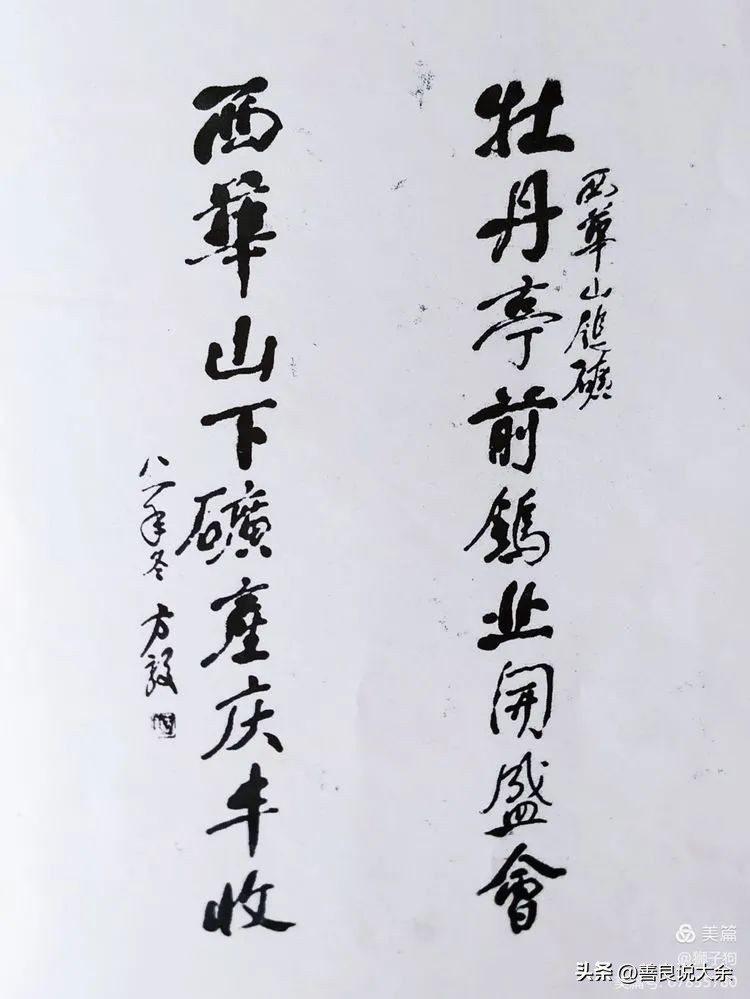 西華山鎢礦
牡丹亭前鎢业開盛會
西華山下礦產庆丰收
八一年冬 方毅
美篇
@狮子狗
头条 @善良说大余